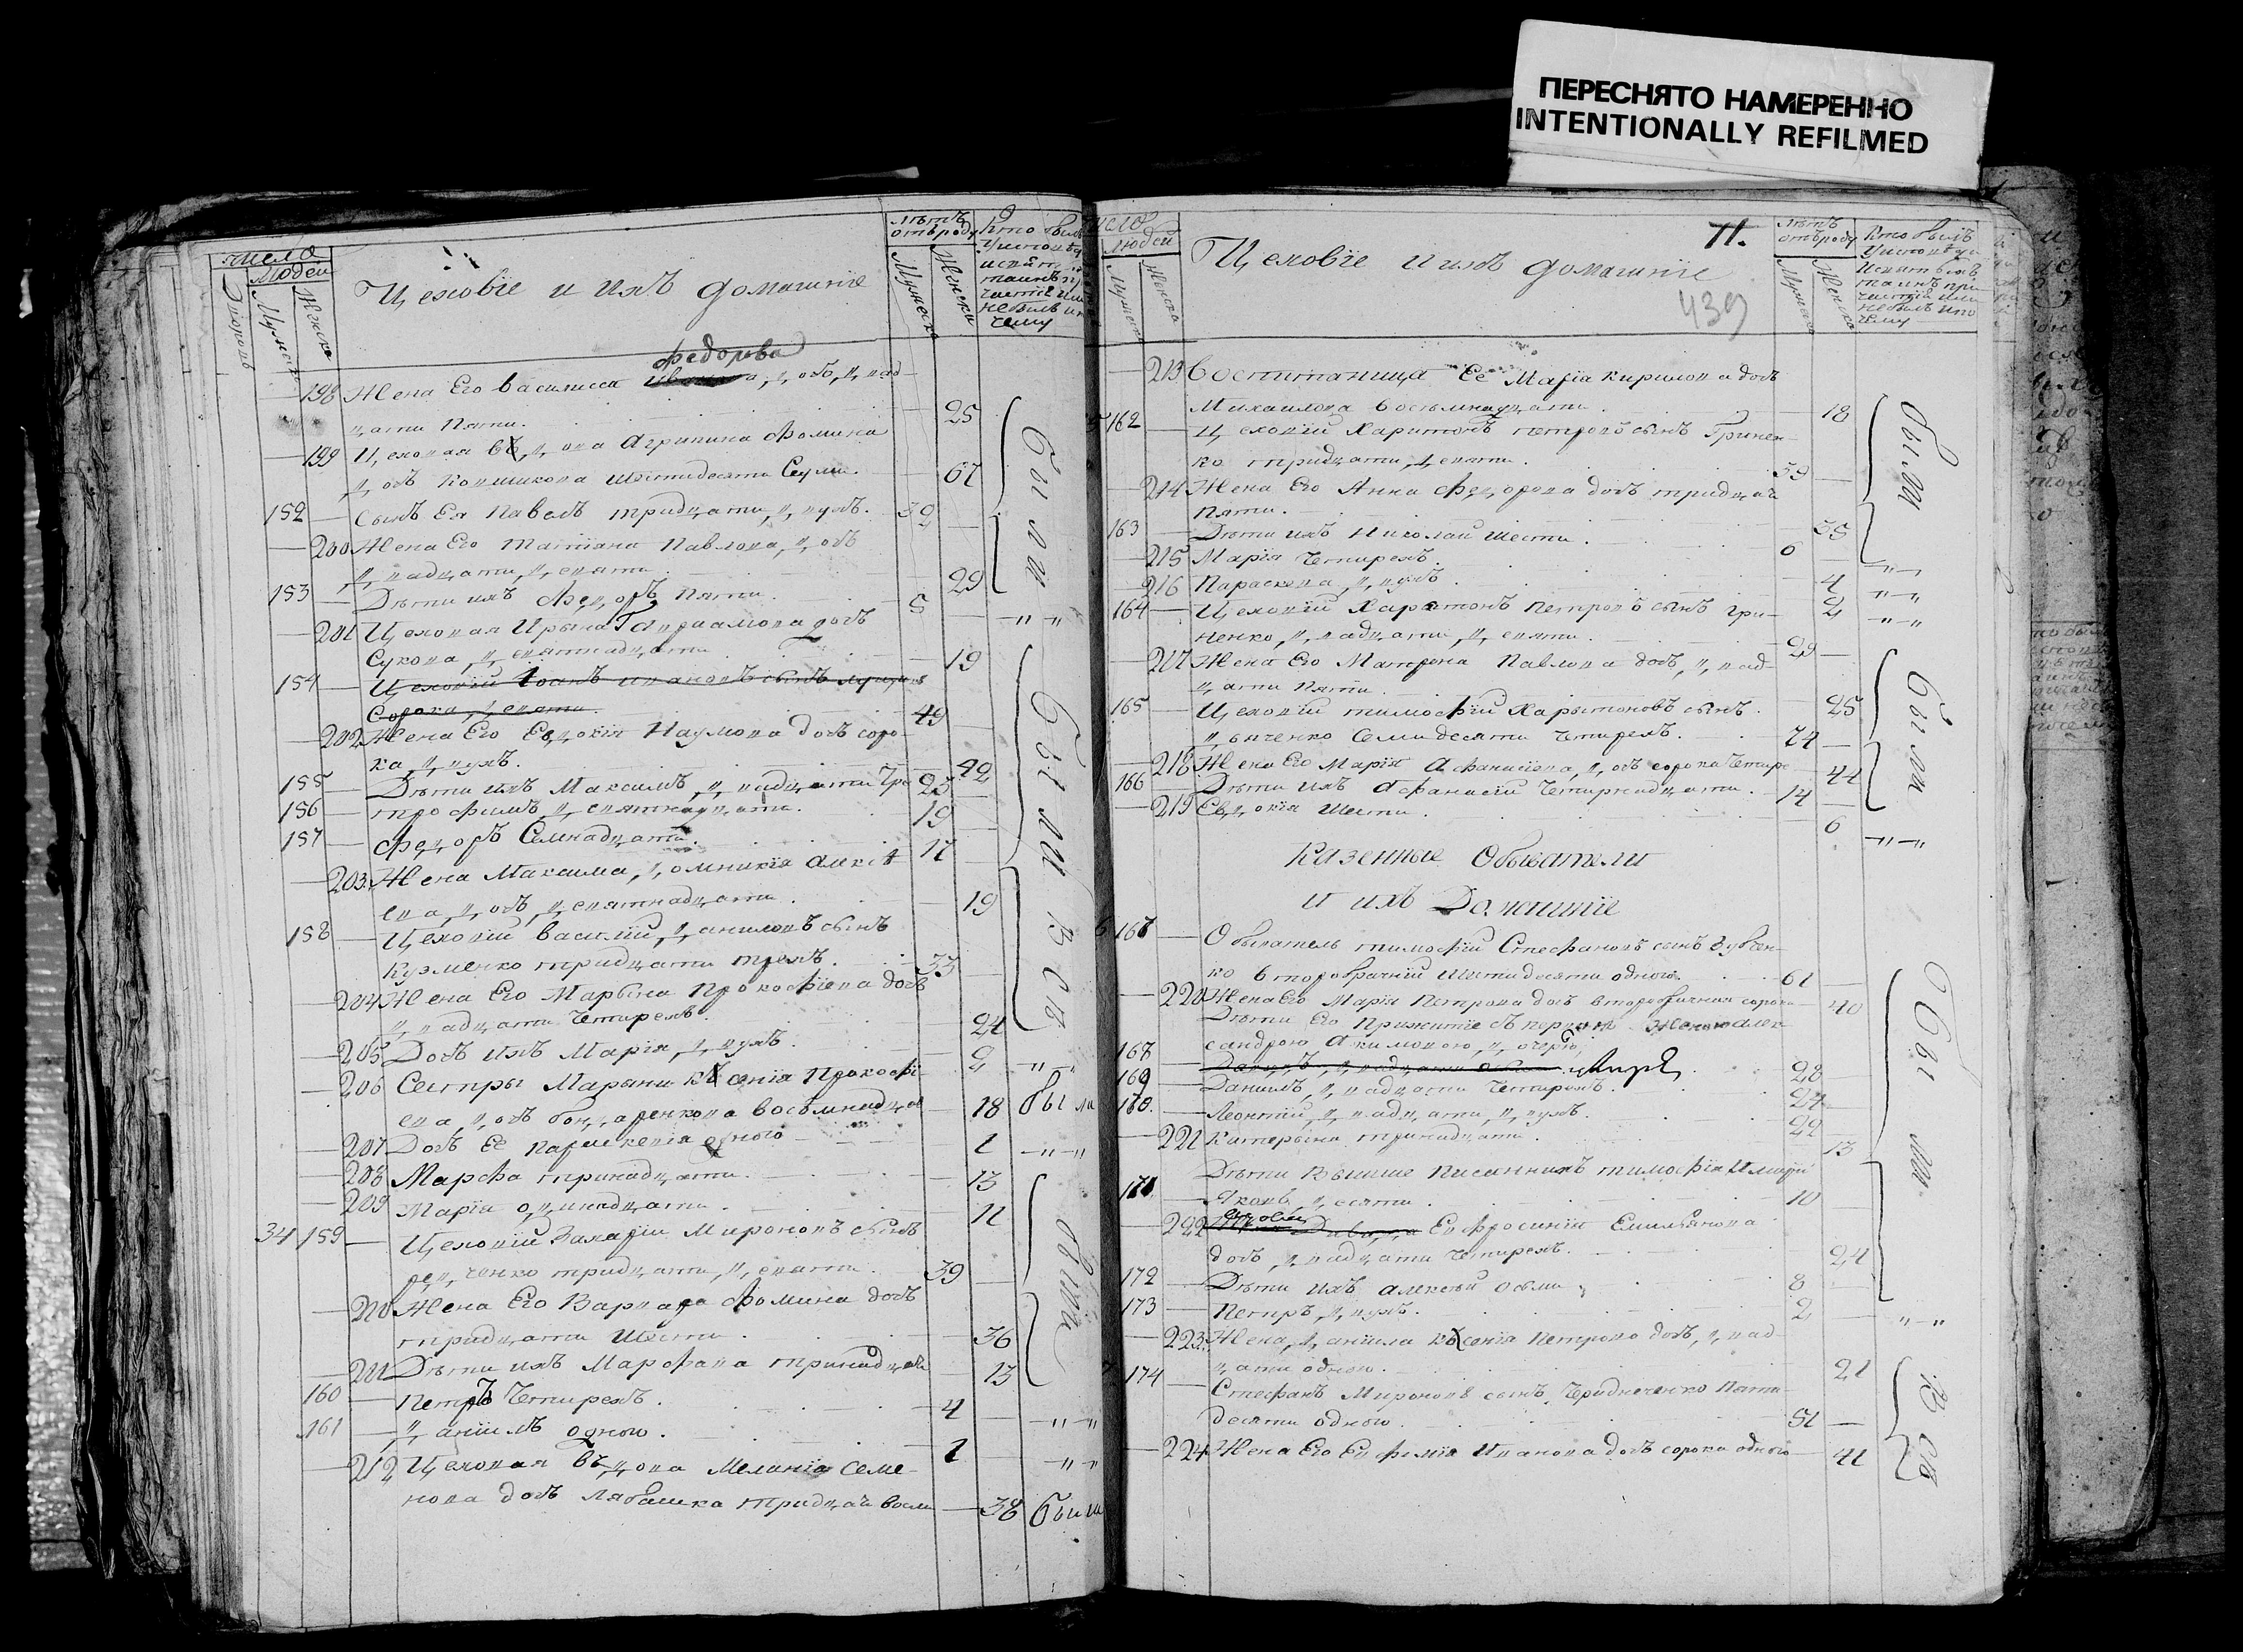 ПЕРЕСНЯТО НАМЕРЕННО
INTENTIONALLY REFILMED
число
людей
Мужеска
Женска
Цеховїе и ихъ домашнїе
лѣтъ
отъ роду
Мужеска
Женска
Федорова
198 Жена Его Василиса двад-
цати пяти. 25
199 Цеховая вдова Агрипина Фомина
дочь шестидесяти Семи. 67
были
152 Сынъ Ея Павелъ тридцати двухъ. 32
200 Жена Его Татїана Павлова дочь
двадцати девяти 29
153 Дѣти ихъ Федоръ пяти. 5
201 Цеховая Ирына дочь
Сукова девятнадцати 19
154 Цеховїй Иоанъ Ивановъ сынъ
Сорока девяти. 49
202 Жена Его Евдокїя Наумова дочь соро-
ка двухъ. 42
155 Дѣти ихъ Максимъ двадцати трехъ 23
156 Трофимъ девятнадцати. 19
157 Федоръ Семнадцати. 17
203 Жена Максима Домникїя Алексѣ
ева дочь девятнадцати 19
158 Цеховїй Василїй Даниловъ сынъ
Кузменко тридцати трехъ. 33
204 Жена Его Марына Прокофїева дочь
двадцати Четирехъ. 24
Были
всѣ
205 Дочь ихъ Марїя двухъ. 2
206 Сестры Марыны Ксенїя Прокофї
ева дочь Бондаренкова восѣмнадцати 18 были
207 Дочь Её Параскевїя одного 1
208 Марфа тринадцати. 13
209 Марїя одинадцати 11
34 159 Цеховїй Захарїй Мироновъ сынъ
тридцати девяти. 39
210 Жена Его Варвара Фомина дочь
тридцати Шести. 36
211 Дѣти ихъ Марфа тринадцати 13
были
160 Петръ Четирехъ. 4
161 Данїилъ одного. 1
212 Цеховая вдова Меланїя Семе-
нова дочь Лябашка тридцати восми 38 были
число
людей
Мужеска
Женска
Цеховїе и ихъ домашнїе
71.
439
лѣтъ
отъ роду
Мужеска
Женска
213 Воспитаница Её Марїя Кирилова дочь
Михайлова восѣмнадцати. 18
162 Цеховїй Харитонъ Петровъ сынъ Гринен-
ко тридцати девяти. 39
214 Жена Его Анна Федорова дочь тридцати
пяти. 35
были
163 Дѣти ихъ Николай шести. 6
215 Марїя Четирехъ. 4
216 Параскева двухъ. 2
164 Цеховїй Харитонъ Петровъ сынъ Гри-
ненко двадцати девяти. 29
217 Жена Его Матрона Павлова дочь двад-
цати пяти. 25
165 Цеховїй Тимофїй Харытоновъ сынъ
Семидесяти четирехъ. 74
218 Жена Его Марїя Афанасїева дочь сорока Четирехъ 44
166 Дѣти ихъ Афанасїй Четирнадцати. 14
Были
219 Евдокїя Шести. 6
Казенные Обыватели
и ихъ Домашнїе
6 167 Обыватель Тимофїй Стефановъ сынъ Зубчен-
ко второбрачнїй Шестидесяти одного. 61
220 Жена Его Марїя Петрова дочь второбрачная сорока 40
Дѣти Его Прижитїе съ первою женою Алек
сандрою Акимовою дочерю
168 28
169 Данилъ двадцати Четирехъ. 24
170. Леонтїй двадцати двухъ. 22
221 Катерына тринадцати. 13
Дѣти Вышше Писаннихъ Тимофїя и Марїи
171 Яковъ десяти. 10
222 Ефросинїя Емильянова
дочь двадцати Четирехъ. 24
172 Дѣти ихъ Алексѣй осьми 8
Были
173 Петръ двухъ. 2
223 Жена Данїила Ксенїя Петрова дочь двад-
цати одного. 21
7 174 Стефанъ Мироновъ сынъ Чередниченко пяти-
десяти одного. 51
224 Жена Его Евфимїя Иванова дочь сорока одного 41
всѣ